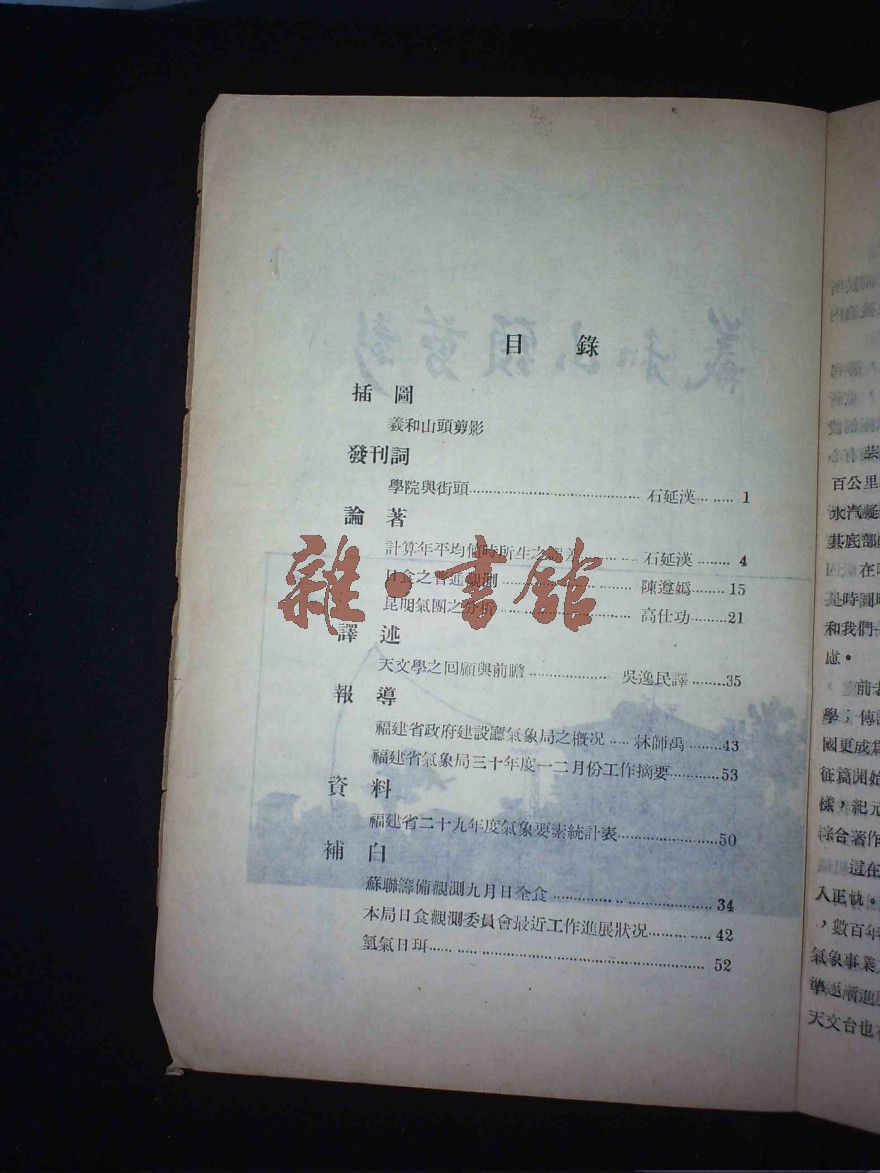 目錄
插圖
羲和山頭剪影
發刊詞
學院與街頭 石延漢 1
論著
計算年平均值時所生之 石延漢 4
日食之普通觀測 陳遵嬀 15
昆明氣團之分析 高仕功 21
譯述
天文學之回顧與前瞻 吳逸民譯 35
報導
福建省政府建設廳氣象局之概况 林師禹 43
福建省氣象局三十年度一二月份工作摘要 53
資料
福建省二十九年度氣象要素統計表 50
補白
蘇聯籌備觀測九月日全食 34
本局日食觀測委員會最近工作進展狀况 42
氫氣日珥 52
雜·書館
百公里
水汽凝
在
是時圓
和我們
慮。
前
學；傳
國更成
征篇開始
樣，紀元
綜合著作
這在
入正軌。
，數百年
氣象事業
準逐漸進
天文台也